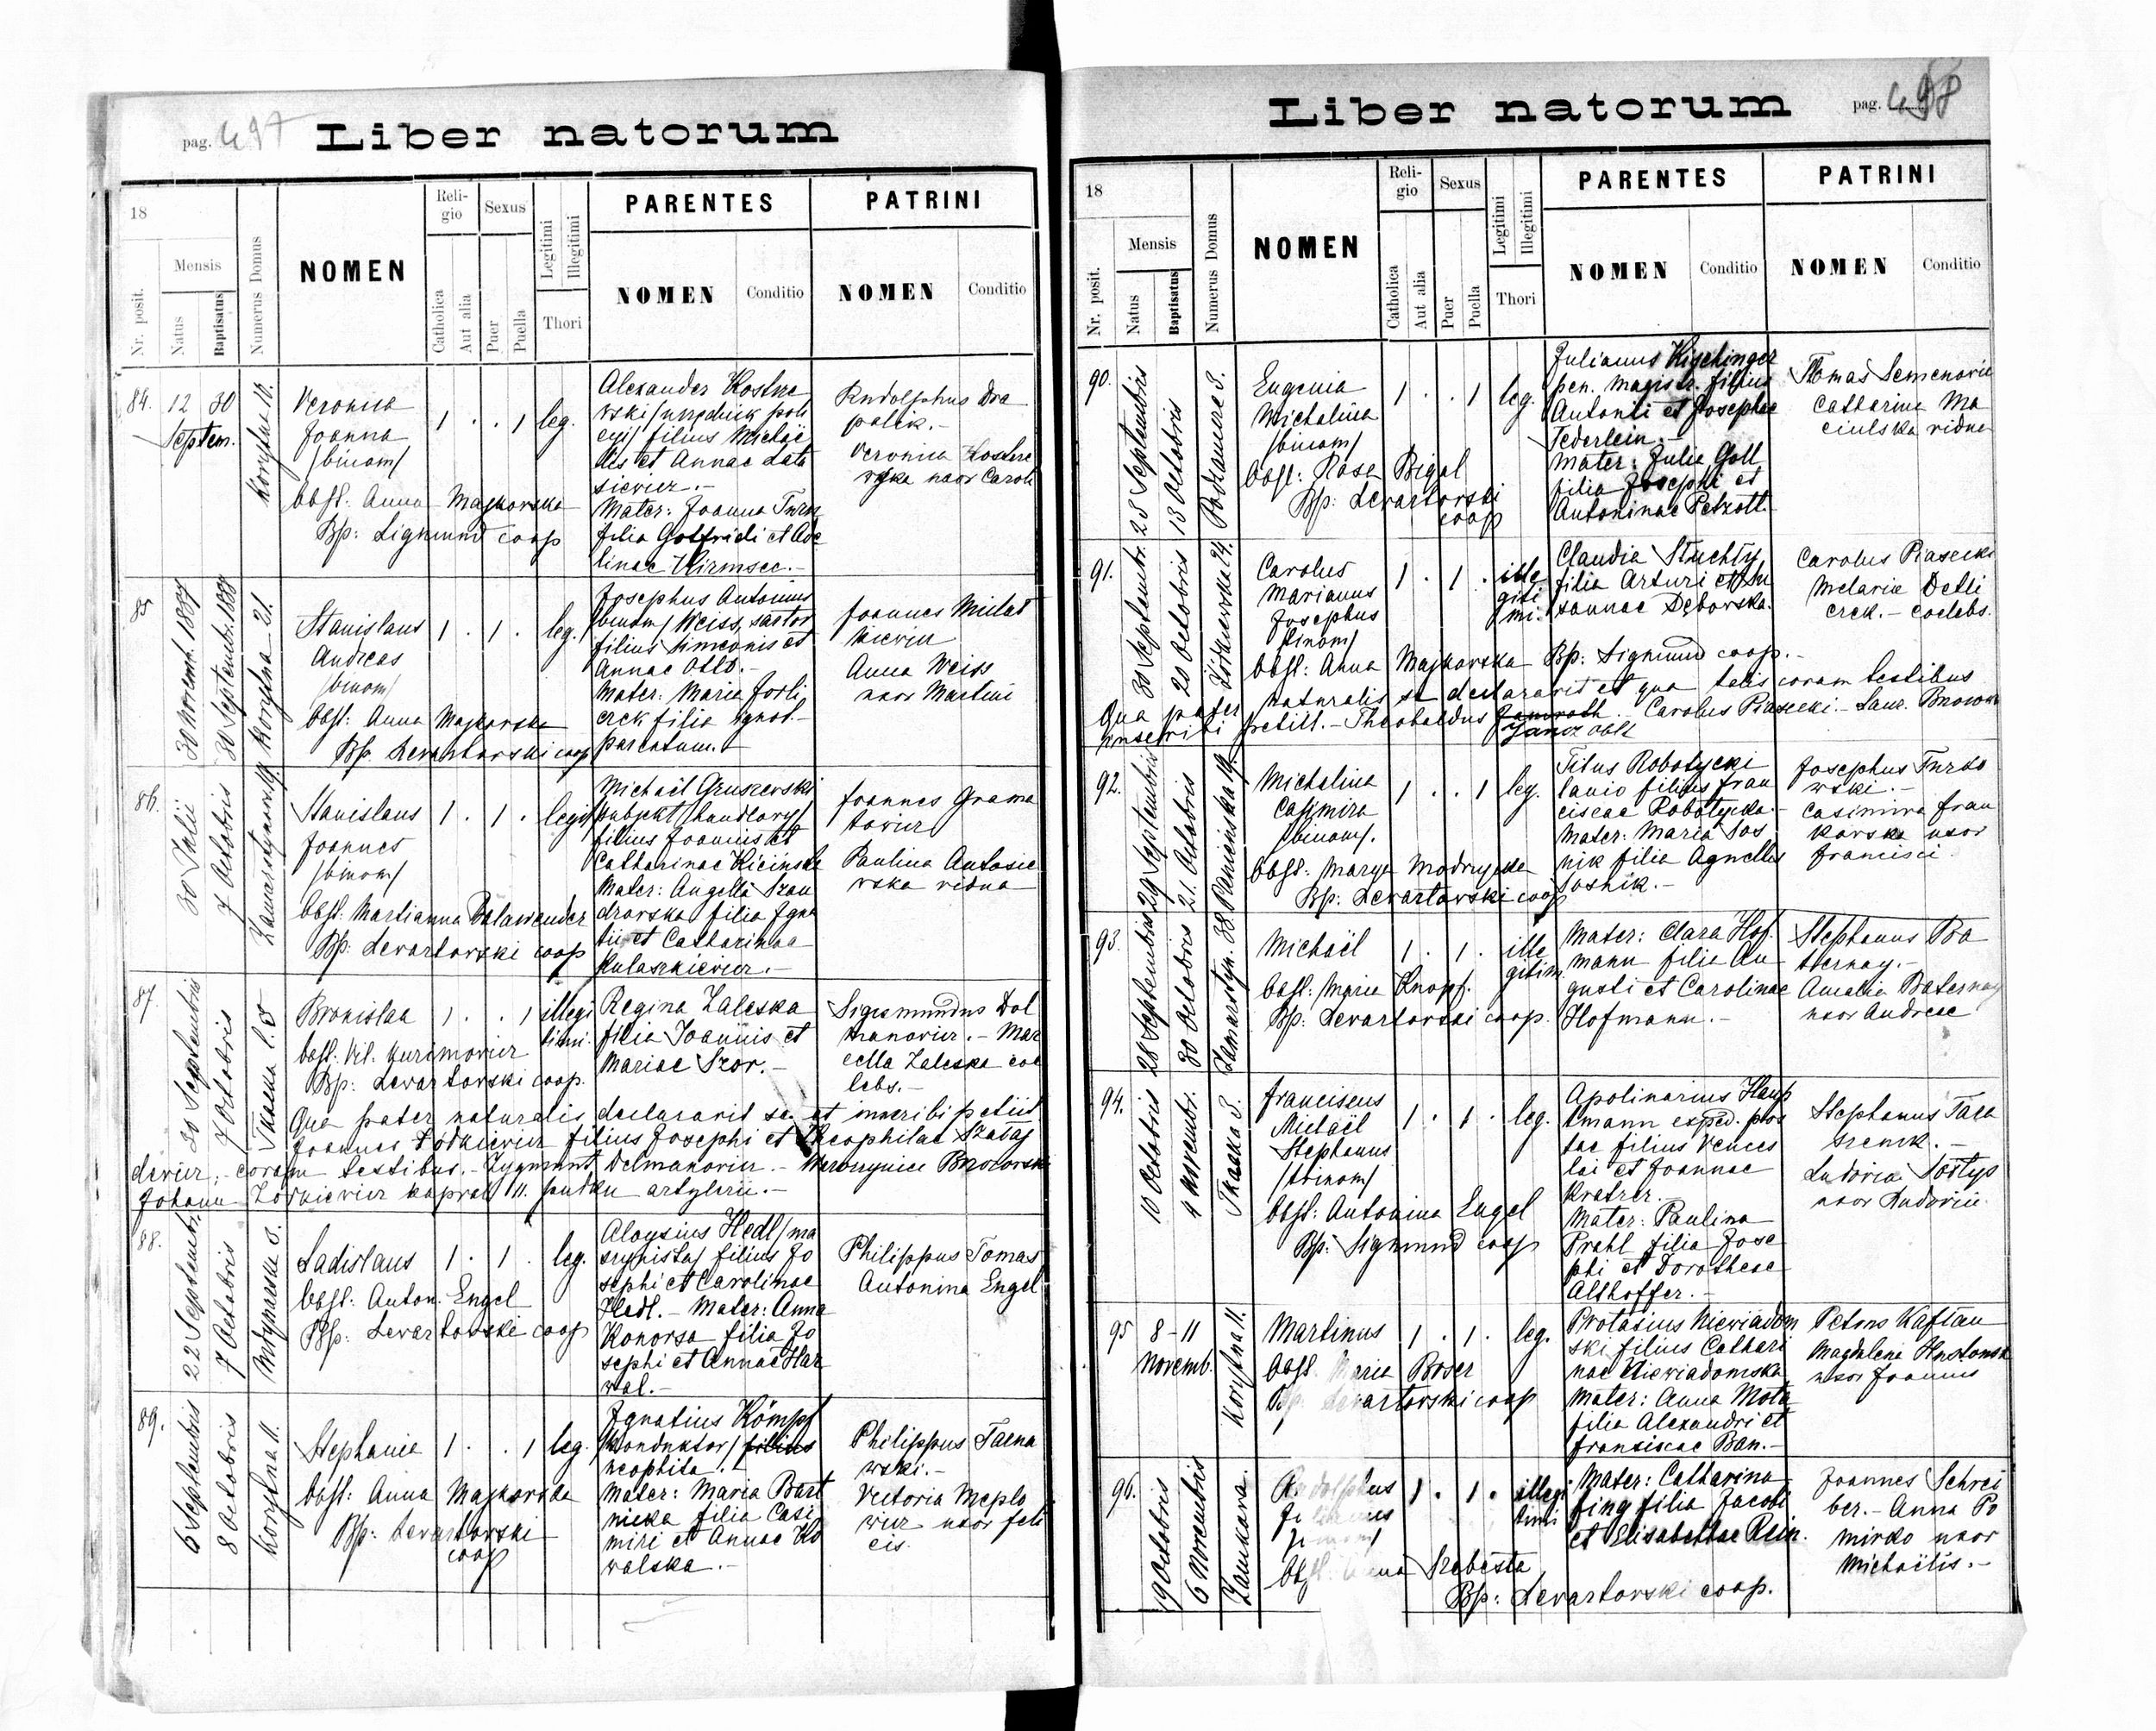 pag. 497
Liber natorum
18
Nr. posit.
Mensis
Natus
Baptisatus
Numerus Domus
NOMEN
Religio
Catholica
Aut alia
Sexus
Puer
Puella
Legitimi
Illegitimi
Thori
PARENTES
NOMEN
Conditio
PATRINI
NOMEN
Conditio
84. 12 30
Septem.
Korytna 10.
Veronica
Joanna
/binom/
Obst. Anna Majkowska
Bp: Sigmund coop
1 . . 1 leg.
Alexander Kostrze
wski
filius Michaë
lis et Annae
Mater: Joanna
filia Gottfridi et Ade
linae
Rudolphus Dra
palik.-
Veronica Kostrze
wska uxor Caroli
85
30 Novemb. 1887
30 Septemb. 1888
Korytna 21.
Stanislaus
Andreas
/binom/
Obst: Anna Majkowska
Bp. Levartovski coop
1 . 1 . leg.
Josephus Antonius
/binom/ Weiss, sartor
filius Simeonis et
Annae Otto.-
Mater: Maria Forli
czek filia ignot.
parentum.-
Joannes
Anna Weiss
uxor Martini
86.
30 Julii
7 Octobris
Stanislaus
Joannes
/binom/
Obst. Martianna Balawender
Bp: Levartovski coop
1 . 1 . legit
Michaël Gruszewski
/subjekt handlowy/
filius Joannis et
Catharinae Kicińska
Mater: Angella Szan
drowska filia Igna
tii et Catharinae
Kulaszkiewicz.-
Joannes Grama
towicz
Paulina Antosie
wska vidua
87.
30 Septembris
7 Octobris
Tkacka l. 5
Bronislaa
Bp: Levartovski coop.
1 . . 1 illegi
timi.
Regina Zaleska
filia Joannis et
Mariae Szor.-
Sigismundus Dol
manowicz.- Mar
cella Zaleska coe
lebs.-
Qua pater naturalis declaravit se et inscribi petiit
Joannes Żółkiewicz filius Josephi et Theophilae Szataj
dewicz,- coram testibus.- Zygmunt Delmanowicz.- Wawrzyniec Brzozowski
Johann Żółkiewicz kapral 11. pułku artylerii.-
88.
22 Septembr.
7 Octobris
Ladislaus
Obst: Anton. Engel
Bp: Levartovski coop
1 . 1 . leg.
Aloysius Hedl /ma
szynista/ filius Jo
sephi et Carolinae
Hedl.- Mater: Anna
Konorsa filia Jo
sephi et Annae Har
wal.-
Philippus Tomas
Antonina Engel
89.
6 Septembris
8 Octobris
Korytna 11.
Stephania
Obst: Anna Majkowska
Bp: Levartovski
coop
1 . . 1 leg.
Ignatius Kömpf
/konduktor/ filius
neophita.-
Mater: Maria Bart
nicka filia Casi
miri et Annae Ko
walska.-
Philippus Tarna
wski.-
Victoria Meplo
wicz uxor Feli
cis.
pag. 498
Liber natorum
18
Nr. posit.
Mensis
Natus
Baptisatus
Numerus Domus
NOMEN
Religio
Catholica
Aut alia
Sexus
Puer
Puella
Legitimi
Illegitimi
Thori
PARENTES
NOMEN
Conditio
PATRINI
NOMEN
Conditio
90.
28 Septembris
13 Octobris
Eugenia
Michalina
/binom/
Obst: Rosa Bigal
Bp: Levartovski
coop
1 . . 1 leg.
Julianus Kischinger
pen. magistr. filius
Antonii et Josephae
Federlein.-
Mater: Julia Goll
filia Josephi et
Antoninae Petzolt.
Thomas Semenowic
Catharina Ma
ciulska vidua
91.
30 Septembr.
20 Octobris
Żółkiewska 24.
Carolus
Marianus
Josephus
Obst: Anna Majkowska Bp: Sigmund coop.-
1 . 1 . ille
giti
mi.
Claudia Stuchły
filia Arturi et Su
sannae Dębowska.
Carolus Piasecki
Melania Detli
czek.- coelebs.
Qua pater naturalis se declaravit et qua talis coram testibus
inscribi petiit.- Theobaldus Carolus Piasecki.-
92.
29 Septembris
21. Octobris
Michalina
Casimira
/binom/.
Obst: Marya
Bp: Levartovski coop
1 . . 1 leg.
Titus Robotycki
lanio filius Fran
ciscae Robotycka.-
Mater: Maria Sos
nik filia Agnellis
Sosnik.-
Josephus Turko
wski.-
Casimira Fran
kowska uxor
Francisci
93.
28 Septembris
30 Octobris
Zamarstyn. 38.
Michaël
Obst: Maria Knopf.
Bp: Levartovski coop.
1 . 1 . ille
gitim.
Mater: Clara Hof
mann filia Au
gusti et Carolinae
Hofmann.-
Stephanus Ba
ternay.-
Amalia Baternay
uxor Andreae
94.
10 Octobris
4 Novembr.
Tkacka 5.
Franciscus
Michaël
Stephanus
/trinom/
Obst: Antonina Engel
Bp: Sigmund coop
1 . 1 . leg.
Apolinarius Haup
tmann exped. pos
tae filius Vences
lai et Joannae
Kratzer.-
Mater: Paulina
Prahl filia Jose
phi et Dorotheae
Althoffer.-
Stephanus Tara
szczuk.-
Ludovica Sottys
uxor Ludovici
95 8-11
Novemb.
Korytna 11.
Martinus
Obst. Maria Boser
Bp: Levartovski coop
1 . 1 . leg.
Protasius Niewiadom
ski filius Cathari
nae Niewiadomska
Mater: Anna Mota
filia Alexandri et
Franciscae Ban.-
Petrus Kaftan
Magdalena
uxor Joannis
96.
19 Octobris
6 Novembris
Zamkowa.
Rudolphus
Obst. Anna Srebesta
Bp: Levartovski coop.
1 . 1 . illegi
timi
Mater: Catharina
Fing filia Jacobi
et Elisabethae Rein.
Joannes Schrei
ber.- Anna Po
mirko uxor
Michaëlis.-